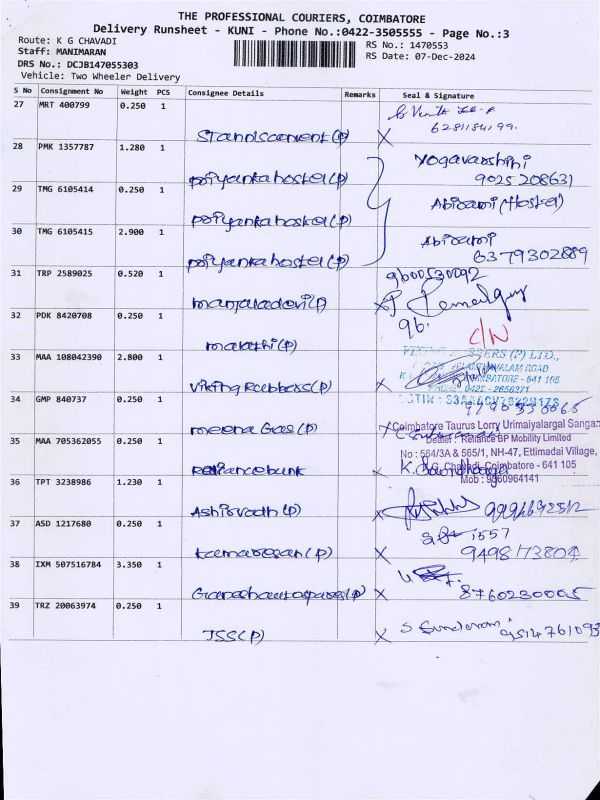 THE PROFESSIONAL COURIERS, COIMBATORE
Delivery Runsheet - KUNI - Phone No.:0422-3505555 - Page No.:3
Route: K G CHAVADI
Staff: MANIMARAN
DRS No.: DCJB147055303
Vehicle: Two Wheeler Delivery
RS No.: 1470553
RS Date: 07-Dec-2024
S No Consignment No Weight PCS Consignee Details Remarks Seal & Signature
27 MRT 400799 0.250 1
6281184199.
28 PMK 1357787 1.280 1
priyanka hostel (p)
Yogavarshini
9025208631
29 TMG 6105414 0.250 1
priyanka hostel (p)
Abirami (Hostel)
30 TMG 6105415 2.900 1
priyanka hostel (p)
Abirami
6379302889
31 TRP 2589025 0.520 1
manjaladevi (p)
9600530092
32 PDK 8420708 0.250 1
marathi (p)
96.
C/N
33 MAA 108042390 2.800 1
Viking Rubbers (p)
34 GMP 840737 0.250 1
meena Gas (p)
Coimbatore Taurus Lorry Urimaiyalargal Sangam
Dealer : Reliance BP Mobility Limited
35 MAA 705362055 0.250 1
reliance bunk
No : 564/3A & 565/1, NH-47, Ettimadai Village,
K.G. Chavadi, Coimbatore - 641 105
Mob : 9360964141
36 TPT 3238986 1.230 1
Ashirvadh (p)
37 ASD 1217680 0.250 1
kamaresan (p)
1557
9498173804
38 IXM 507516784 3.350 1
Ganesh autospares (p)
8760230005
39 TRZ 20063974 0.250 1
JSS (p)
S Sundaram
9514761093